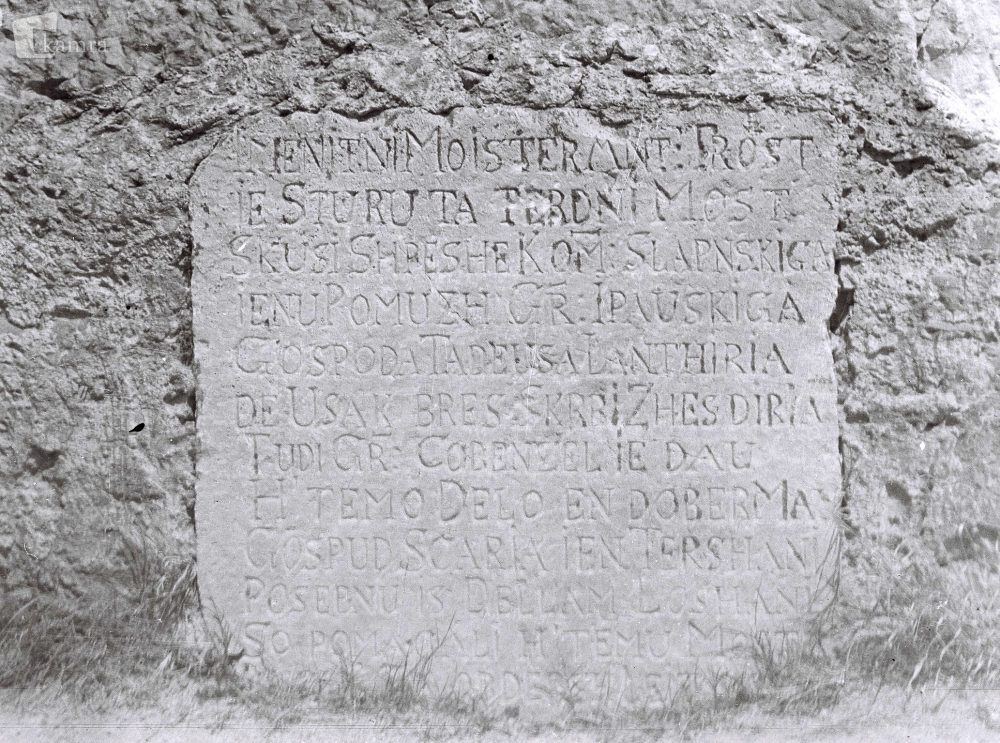 kamra
IMENITNI MOISTER ANT: PROST
IE STURU TA PERDNI MOST
SKUSI SHPESHE KOM: SLAPNSKIGA
IENU POMUZH GR: IPAUSKIGA
GOSPODA TADEUSA LANTHIRIA
DE USAK BRES SKRBI ZHES DIRIA
TUDI GR: COBENZEL IE DAU
H TEMO DELO EN DOBER MA
GOSPUD SCARIA IEN TERSHANI
POSEBNU IS DELLAM LOSHANI
SO POMAGALI H'TEMU